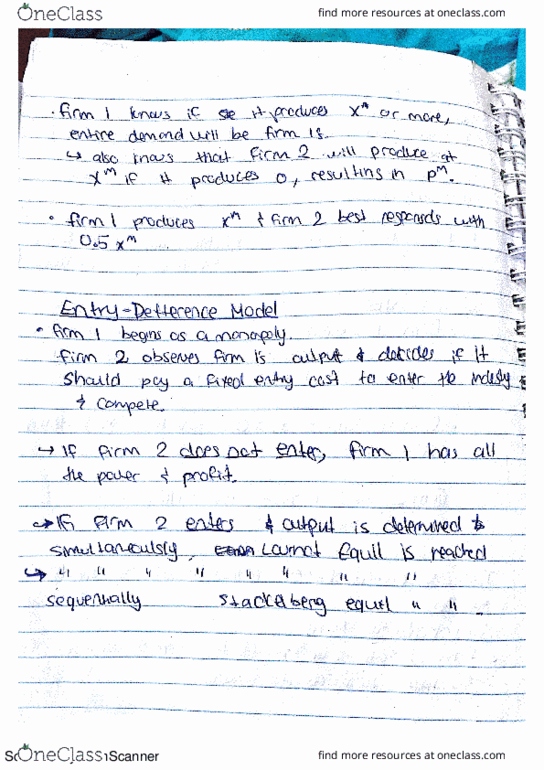 OneClass
find more resources at oneclass.com
· firm 1 knows if it produces x* or more,
entire demand will be firm 1s.
↳ also knows that firm 2 will produce at
xᴹ if it produces 0, resulting in pᴹ.
• firm 1 produces xᴹ & firm 2 best responds with
0.5 xᴹ
Entry-Detterence Model
• firm 1 begins as a monopoly.
firm 2 observes firm 1s output & decides if it
should pay a fixed entry cost to enter the
& compete.
→ If firm 2 does not enter, firm 1 has all
the power & profit.
→ If firm 2 enters & output is determined
simultaneously, Cournot Equil is reached
↳ " " " " " " " "
sequentially Stackelberg equil " " .
OneClass
Scanner
find more resources at oneclass.com